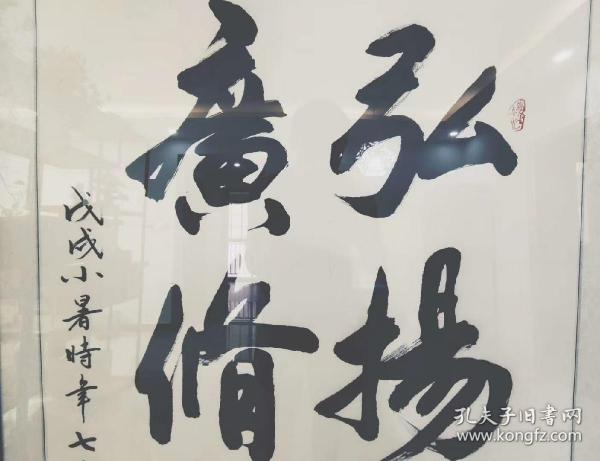 弘揚
廣脩
戊戌小暑時年七
孔夫子旧书网
www.kongfz.com